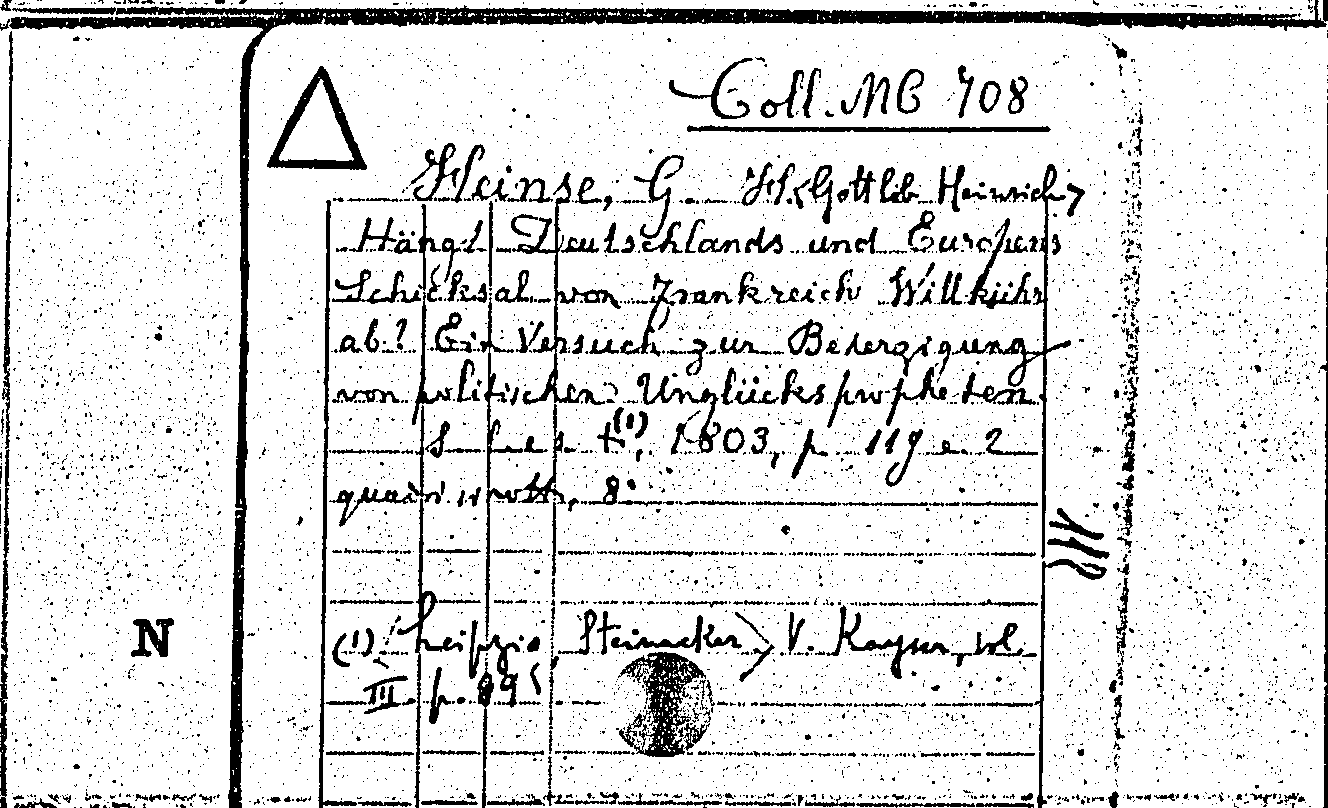 Coll. MC 708
Heinse, G. H. <Gottlib Heinrich>
Hängt Deutschlands und Europens
Schicksal von Frankreich Willkühr
ab? Ein Versuch zur Beherzigung
von politischen Unglückspropheten.
S. l. e s. t.(1), 1803, p. 119 e 2
quadri, 8°
N
(1) <Leipzig, Steinacker> V. Kayser, vol.
III p. 89